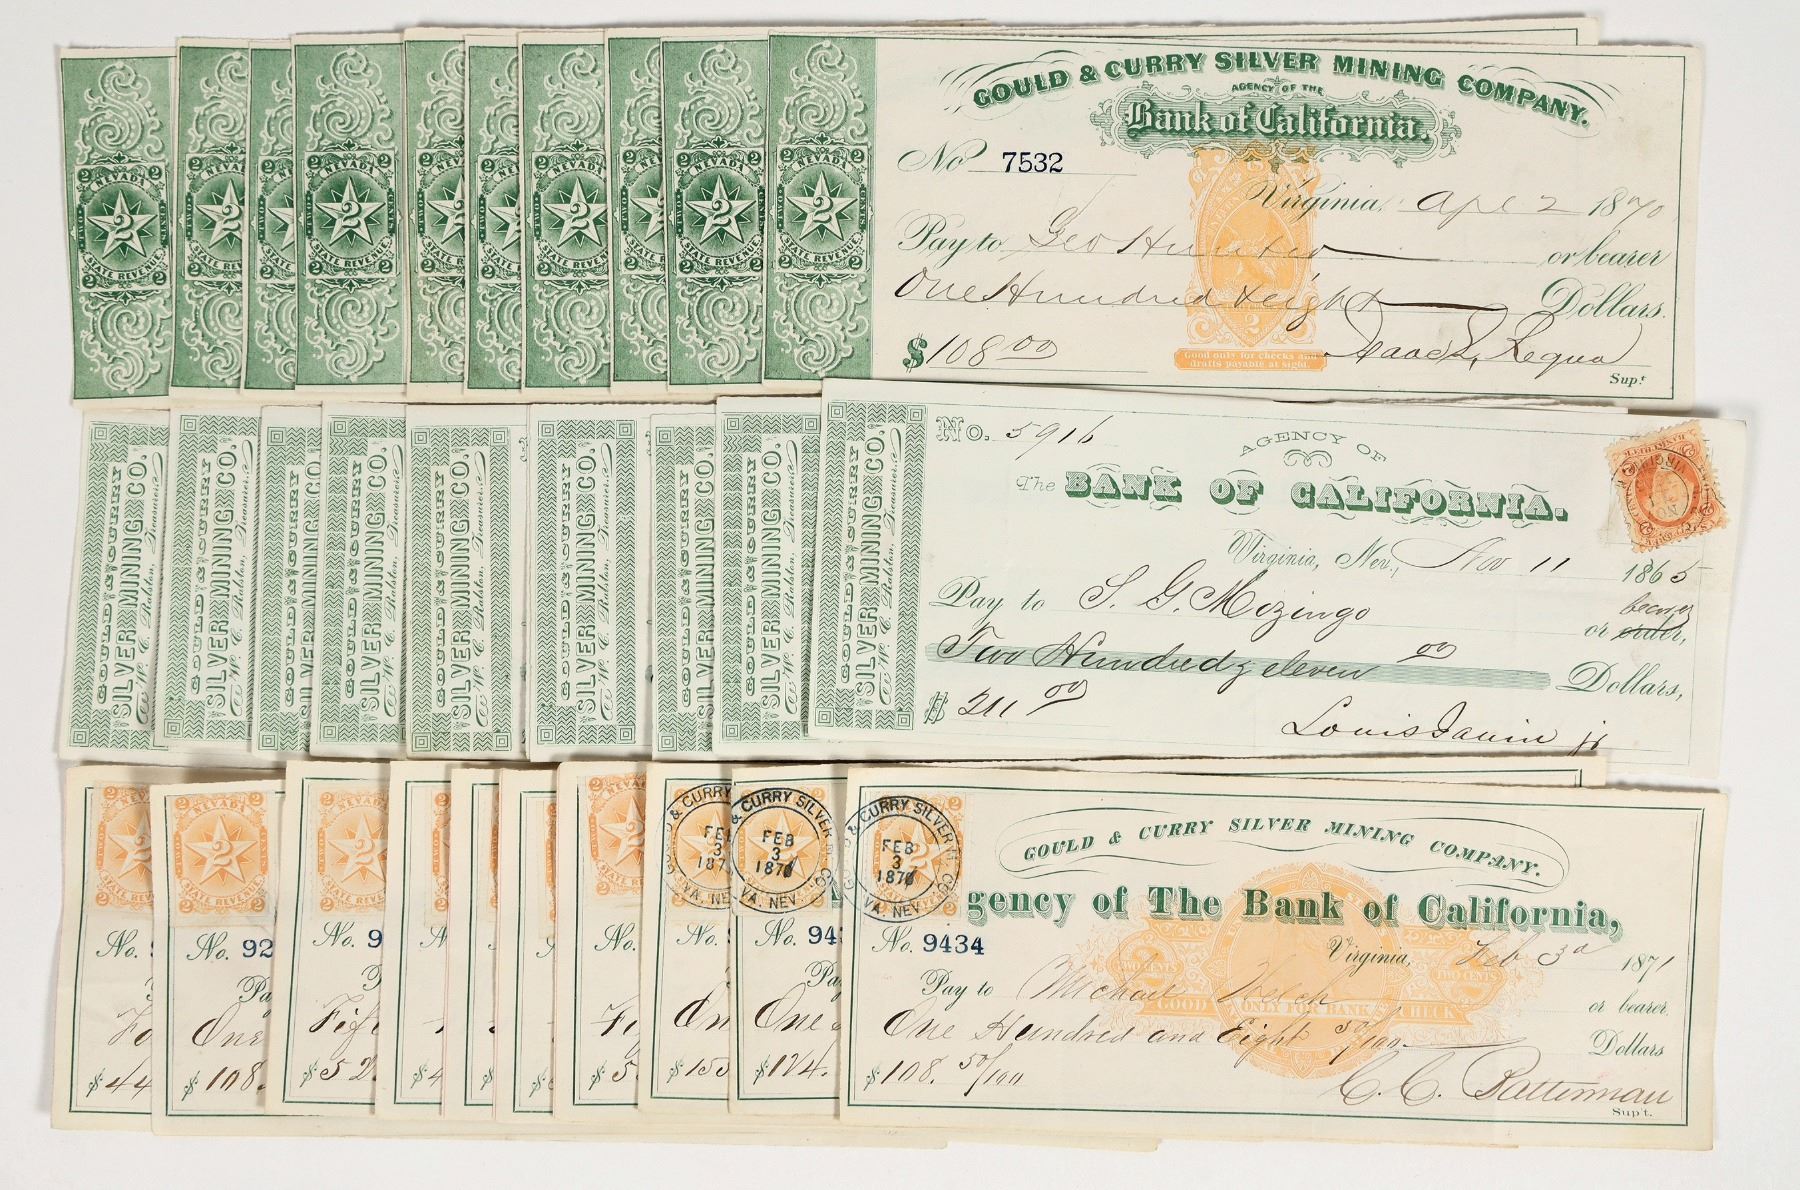 GOULD & CURRY SILVER MINING COMPANY.
AGENCY OF THE
Bank of California.
No 7532
Virginia, Apl 2 1870
Pay to Geo Hunter or bearer
One Hundred & eight Dollars.
$108 00
Good only for checks and
drafts payable at sight.
Isaac L. Requa
Sup.t
2 NEVADA 2
TWO CENTS
2
STATE REVENUE
2 2
GOULD & CURRY
SILVER MINING CO.
W. C. Ralston, Treasurer.
No. 5916
AGENCY OF
The BANK OF CALIFORNIA.
Virginia, Nev., Nov 11 1865
Pay to S. G. Mozingo
bearer
or order,
Two Hundred & eleven 00 Dollars,
$ 211 00
Louis Janin jr
2 NEVADA 2
TWO CENTS
2
STATE REVENUE
No. 92
Pa
One
$ 108.
No. 9
Fift
$ 52
$ 44
FEB
3
187
No. 94
One
$ 124.
& CURRY SILVER M
FEB
3
1871
VA. NEV.
GOULD & CURRY SILVER MINING COMPANY.
gency of The Bank of California,
No. 9434
Virginia, Feb 3d 1871
Pay to Michael Welch or bearer
TWO CENTS TWO CENTS
GOOD ONLY FOR BANK CHECK
One Hundred and Eight 50/100 Dollars
$ 108. 50/100
C. C. Batterman
Sup't.